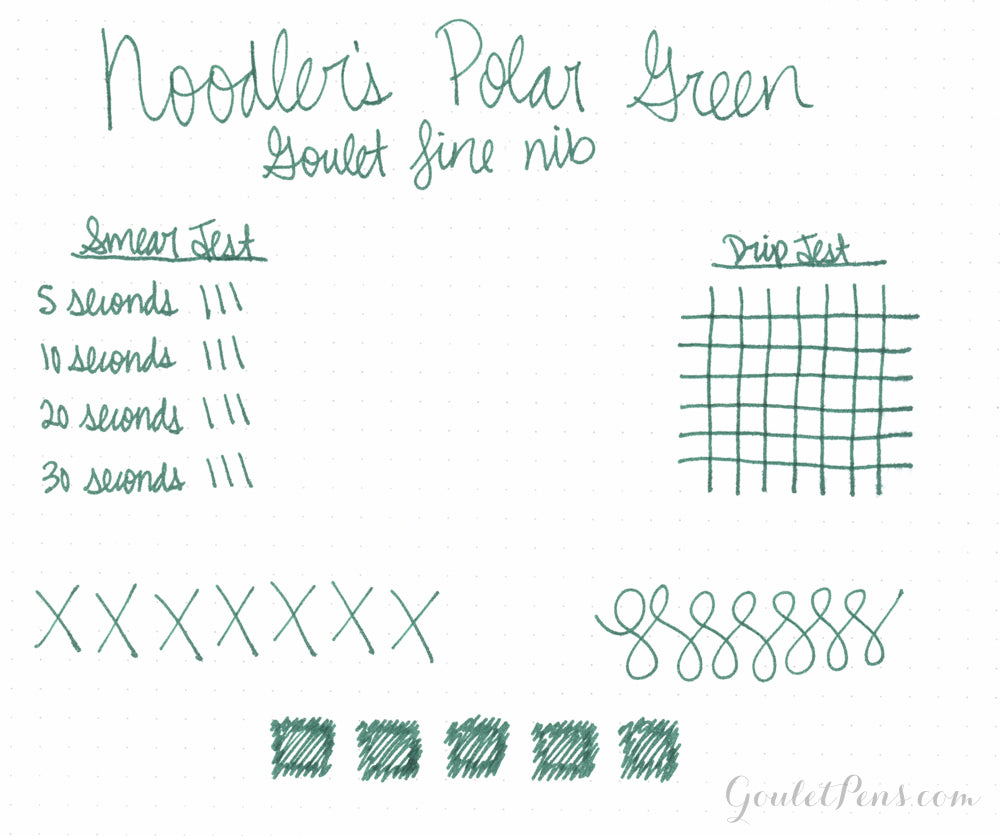 Noodler's Polar Green
Goulet fine nib
Smear Test
5 seconds
10 seconds
20 seconds
30 seconds
Drip Test
GouletPens.com